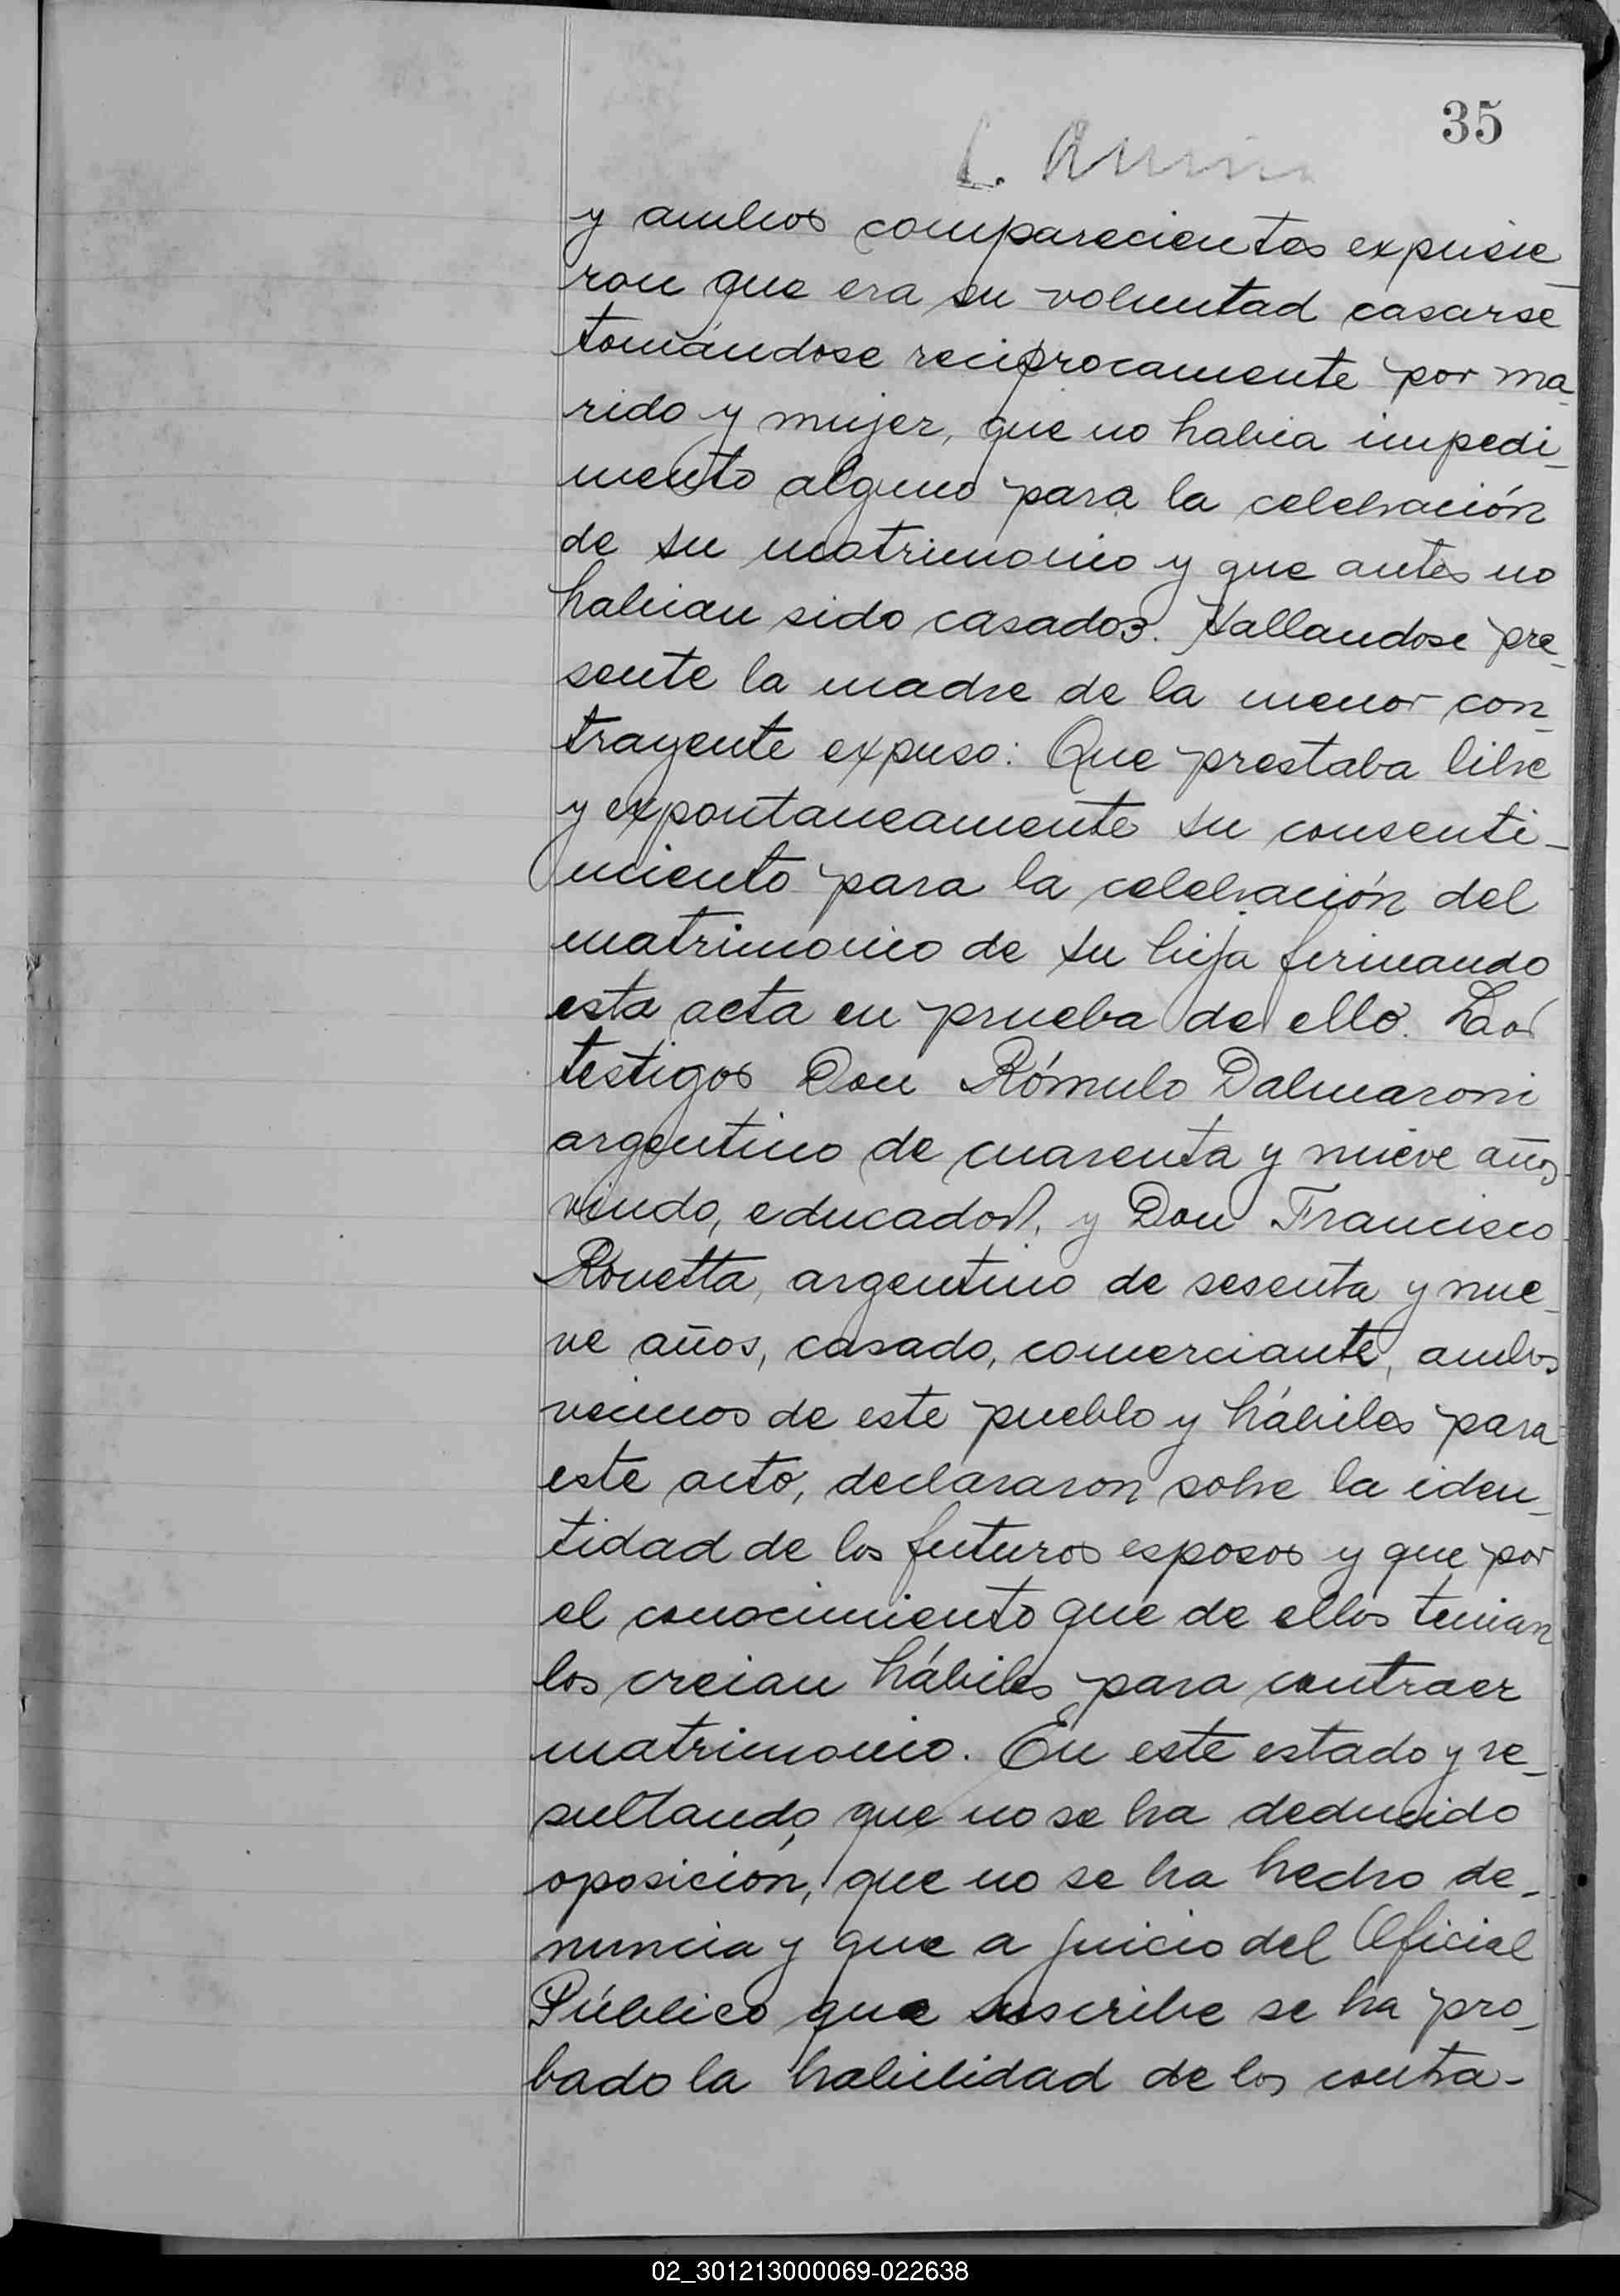 35
y ambos comparecientes expusie_
ron que era su voluntad casarse
tomándose reciprocamente por ma_
rido y mujer, que no habia impedi_
mento alguno para la celebración
de su matrimonio y que antes no
habian sido casados. Hallandose pre_
sente la madre de la menor con_
trayente expuso: Que prestaba libre
y expontaneamente su consenti_
miento para la celebración del
matrimonio de su hija firmando
esta acta en prueba de ello. Los
testigos Don Rómulo Dalmaroni
argentino de cuarenta y nueve años
viudo, educador, y Don Francisco
Rovetta, argentino de sesenta y nue_
ve años, casado, comerciante, ambos
vecinos de este pueblo y hábiles para
este acto, declararon sobre la iden_
tidad de los futuros esposos y que por
el conocimiento que de ellos tenian
los creian hábiles para contraer
matrimonio. En este estado y re_
sultando, que no se ha deducido
oposición, que no se ha hecho de_
nuncia y que a juicio del Oficial
Público que suscribe se ha pro_
bado la habilidad de los contra-
02_301213000069-022638